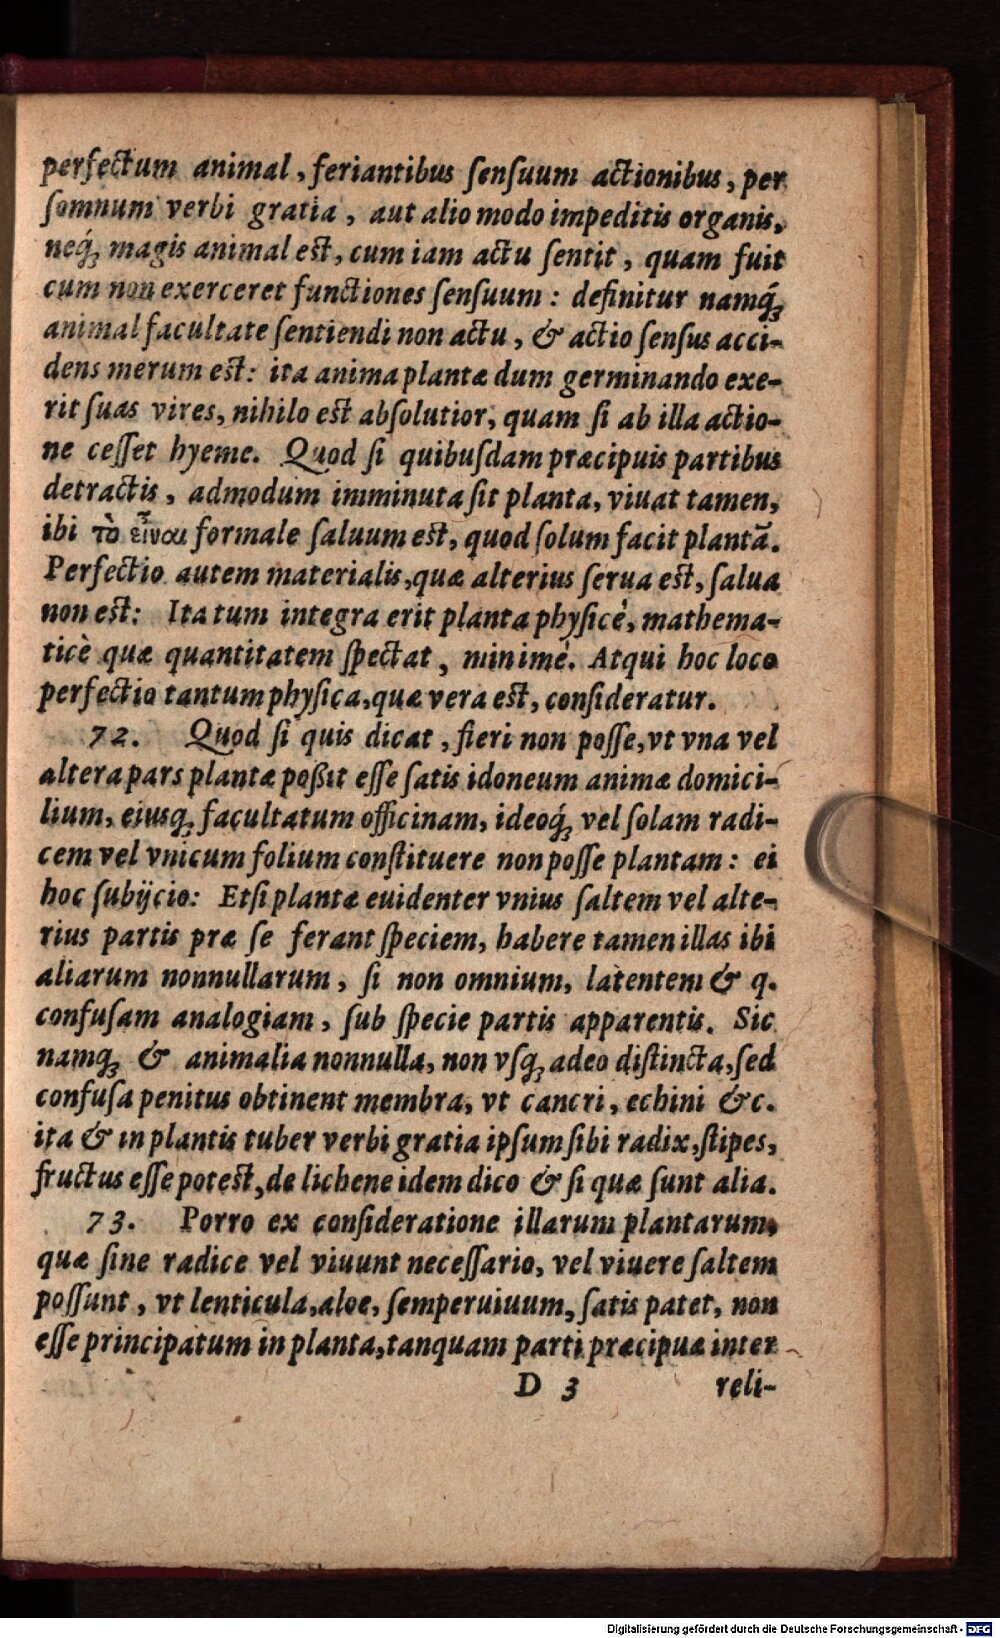 perfectum animal, feriantibus ſenſuum actionibus, per
ſomnum verbi gratia, aut alio modo impeditis organis,
neq́ꝫ magis animal eſt, cum iam actu ſentit, quam fuit
cum non exerceret functiones ſenſuum: definitur namq́ꝫ
animal facultate ſentiendi non actu, & actio ſenſus acci-
dens merum eſt: ita anima plantæ dum germinando exe-
rit ſuas vires, nihilo eſt abſolutior, quam ſi ab illa actio-
ne ceſſet hyeme. Quod ſi quibuſdam præcipuis partibus
detractis, admodum imminuta ſit planta, viuat tamen,
ibi τὸ εἶναι formale ſaluum eſt, quod ſolum facit plantã.
Perfectio autem materialis, quæ alterius ſerua eſt, ſalua
non eſt: Ita tum integra erit planta phyſicè, mathema-
ticè quæ quantitatem ſpectat, minimè. Atqui hoc loco
perfectio tantum phyſica, quæ vera eſt, conſideratur.
72. Quod ſi quis dicat, fieri non poſſe, vt vna vel
altera pars plantæ poßit eſſe ſatis idoneum animæ domici-
lium, eiusqꝫ facultatum officinam, ideoq́ꝫ vel ſolam radi-
cem vel vnicum folium conſtituere non poſſe plantam: ei
hoc ſubijcio: Etſi plantæ euidenter vnius ſaltem vel alte-
rius partis præ ſe ferant ſpeciem, habere tamen illas ibi
aliarum nonnullarum, ſi non omnium, latentem & q.
confuſam analogiam, ſub ſpecie partis apparentis. Sic
namqꝫ & animalia nonnulla, non vſqꝫ adeo diſtincta, ſed
confuſa penitus obtinent membra, vt cancri, echini &c.
ita & in plantis tuber verbi gratia ipſum ſibi radix, ſtipes,
fructus eſſe poteſt, de lichene idem dico & ſi quæ ſunt alia.
73. Porro ex conſideratione illarum plantarum,
quæ ſine radice vel viuunt neceſſario, vel viuere ſaltem
poſſunt, vt lenticula, aloe, ſemperuiuum, ſatis patet, non
eſſe principatum in planta, tanquam parti præcipuæ inter
D 3 reli-
Digitalisierung gefördert durch die Deutsche Forschungsgemeinschaft - DFG